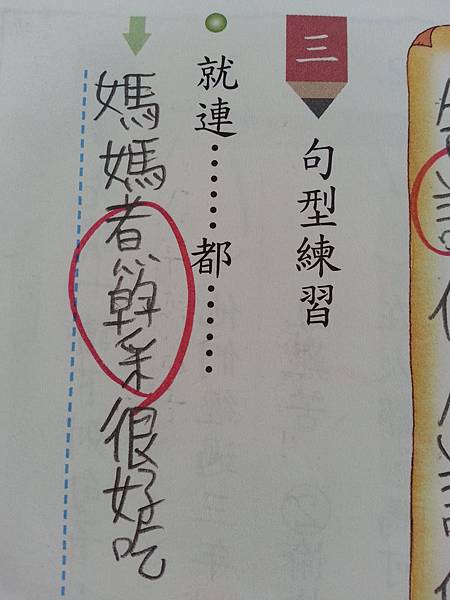 三
句型練習
就連……都……
媽媽煮很好吃